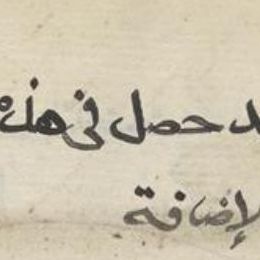 حصل فى هذه
الإضافة